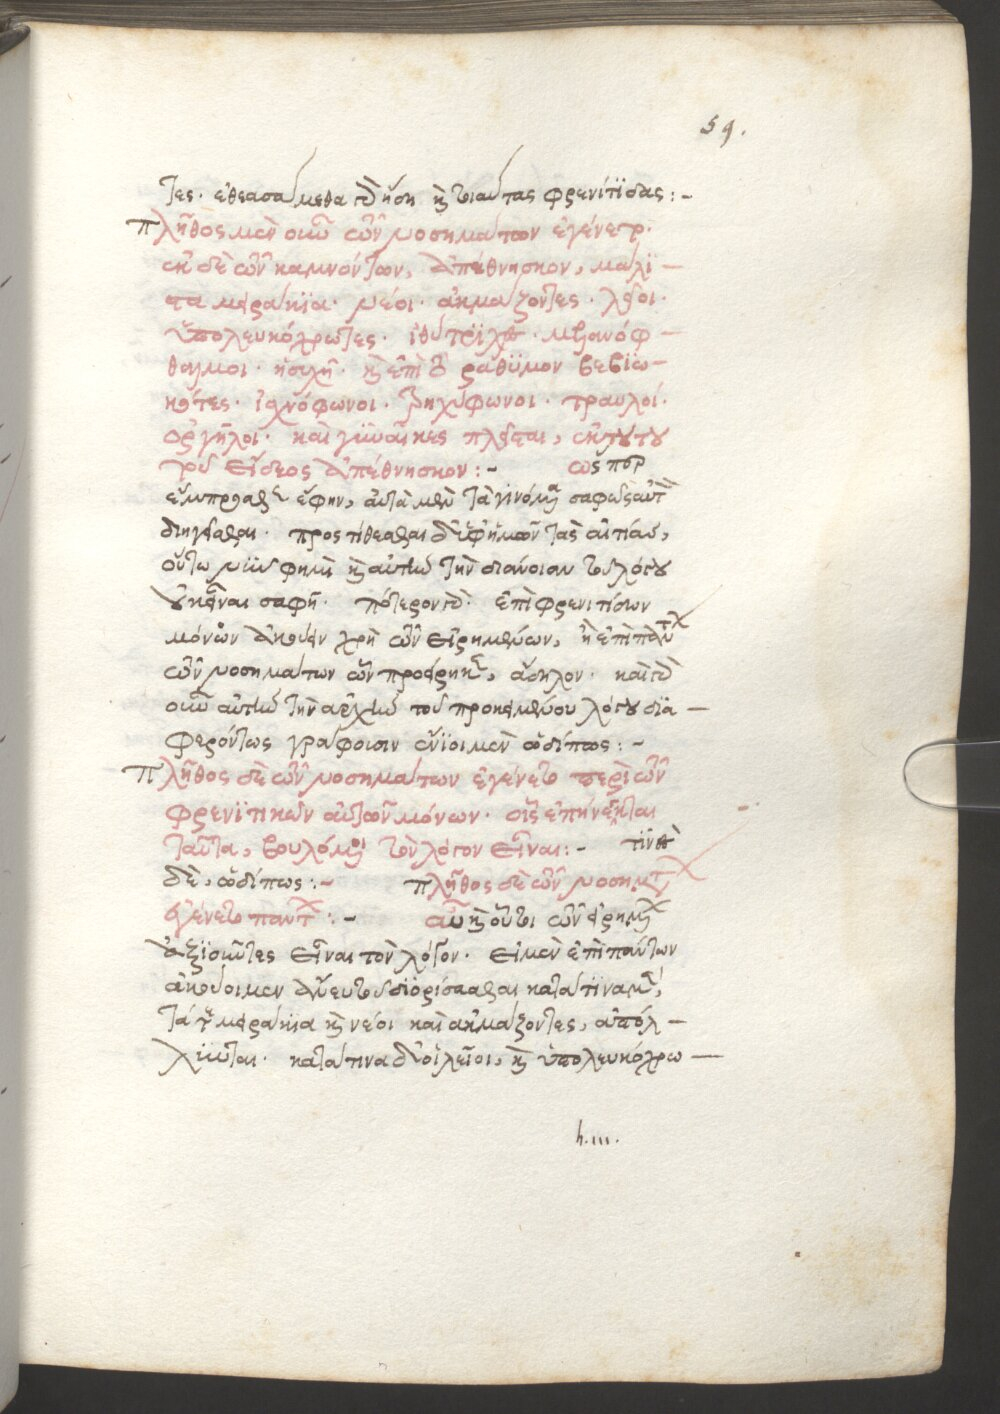 59.
τες· ἐθεασάμεθα δὲ ἤδη καὶ τοιαύτας φρενίτϊδας:-
πλῆθος μὲν οὖν τῶν νοσημάτων ἐγένετο·
ἐκ δὲ τῶν καμνόντων, ἀπέθνησκον, μάλϊ-
στα μειράκϊα· νέοι· ἀκμάζοντες· λεῖοι·
ὑπολευκόχρωτες· ἰθύτρϊχες· μελανόφ-
θαλμοι· καὶ ἐπὶ τὸ ῥάθϋμον βεβϊω-
κότες· ἰσχνόφωνοι· τρηχύφωνοι· τραυλοί·
ὀργῆλοι· καὶ γϋναῖκες πλεῖσται, ἐκ τούτου
τοῦ εἴδεος ἀπέθνησκον:- ὥσπερ
ἔμπροσθεν ἔφην, αὐτὰ μὲν τὰ γινόμενα σαφῶς αὐτὸν
διηγεῖσθαι· προστίθεσθαι δὲ ὑφ' ἡμῶν τὰς αἰτίας,
οὕτω νῦν φημὶ καὶ αὐτὴν τὴν διάνοιαν τοῦ λόγου
οὐκ εἶναι σαφῆ· πότερον δὲ· ἐπὶ φρενιτίδων
μόνων ἀκούειν χρὴ τῶν εἰρημένων, ἢ ἐπὶ πάντων
τῶν νοσημάτων ὧν προείρηκε, ἄδηλον· καὶ δὲ
οὖν αὐτὴν τὴν ἀρχὴν τοῦ προκειμένου λόγου δϊα-
φερόντως γράφουσιν ἔνϊοι μὲν ὡδίπως:-
πλῆθος δὲ τῶν νοσημάτων ἐγένετο περὶ τῶν
φρενϊτικῶν αὐτῶν μόνων· οἷς
ταῦτα, βουλόμενοι τὸν λόγον εἶναι:- τϊνὲς
δὲ, ὡδίπως:- πλῆθος δὲ τῶν νοσημάτων
ἐγένετο πάντων:- καὶ οὗτοι τῶν εἰρημένων
ἀξϊοῦντες εἶναι τὸν λόγον· εἰ μὲν ἐπὶ πάντων
ἀκούοιμεν ἄνευ τοῦ δϊορίσασθαι κατά τϊνα μὲν,
τά τε μειράκϊα καὶ νέοι καὶ ἀκμάζοντες, ἀπόλ-
λϋνται· κατά τινα δὲ οἱ λεῖοι, καὶ ὑπολευκόχρω-
h.iii.